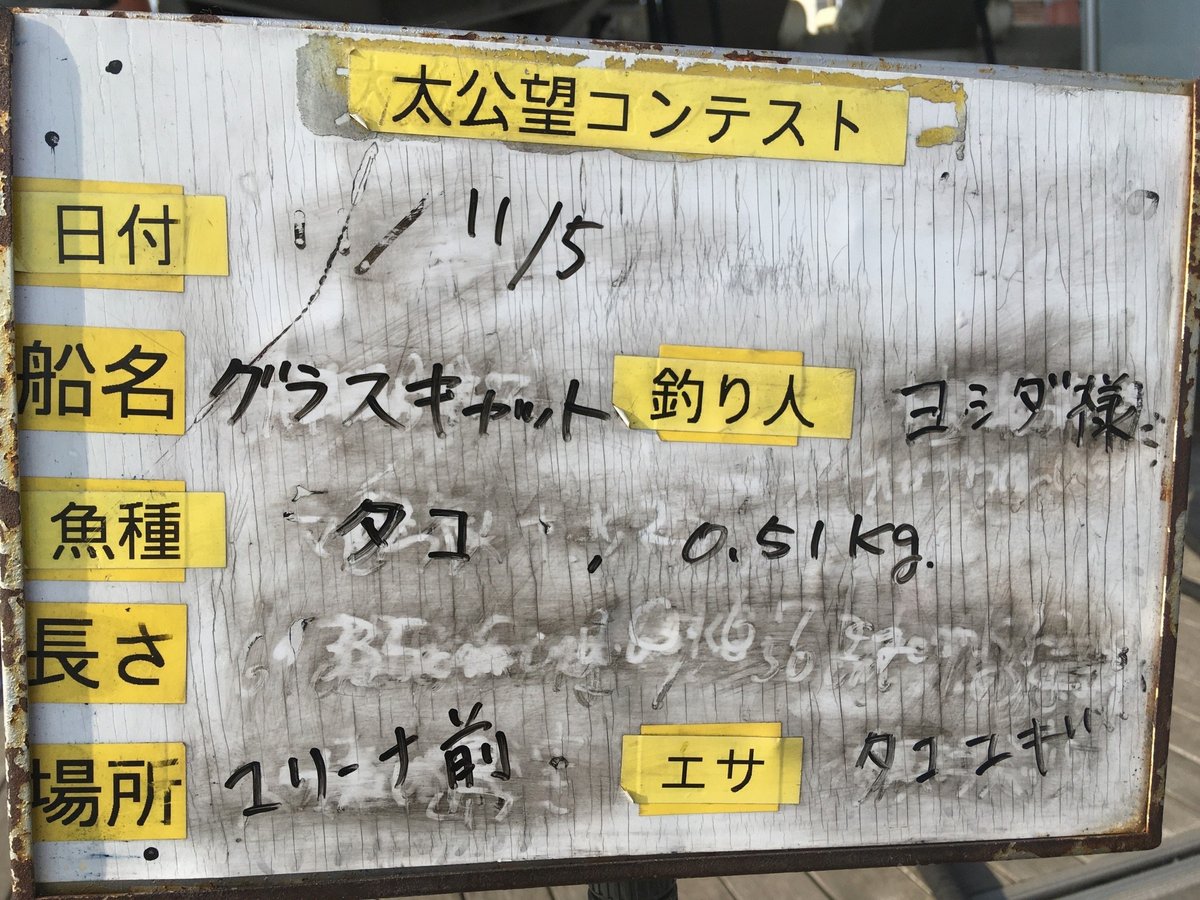 太公望コンテスト
日付 11/5
船名 グラスキャット 釣り人 ヨシダ様
魚種 タコ . 0.51kg.
長さ
場所 ユリーナ前. エサ タコエギ